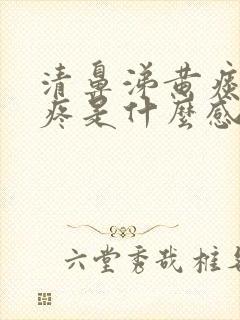 清鼻涕黄痰
疼是什麼感
六堂秀哉框